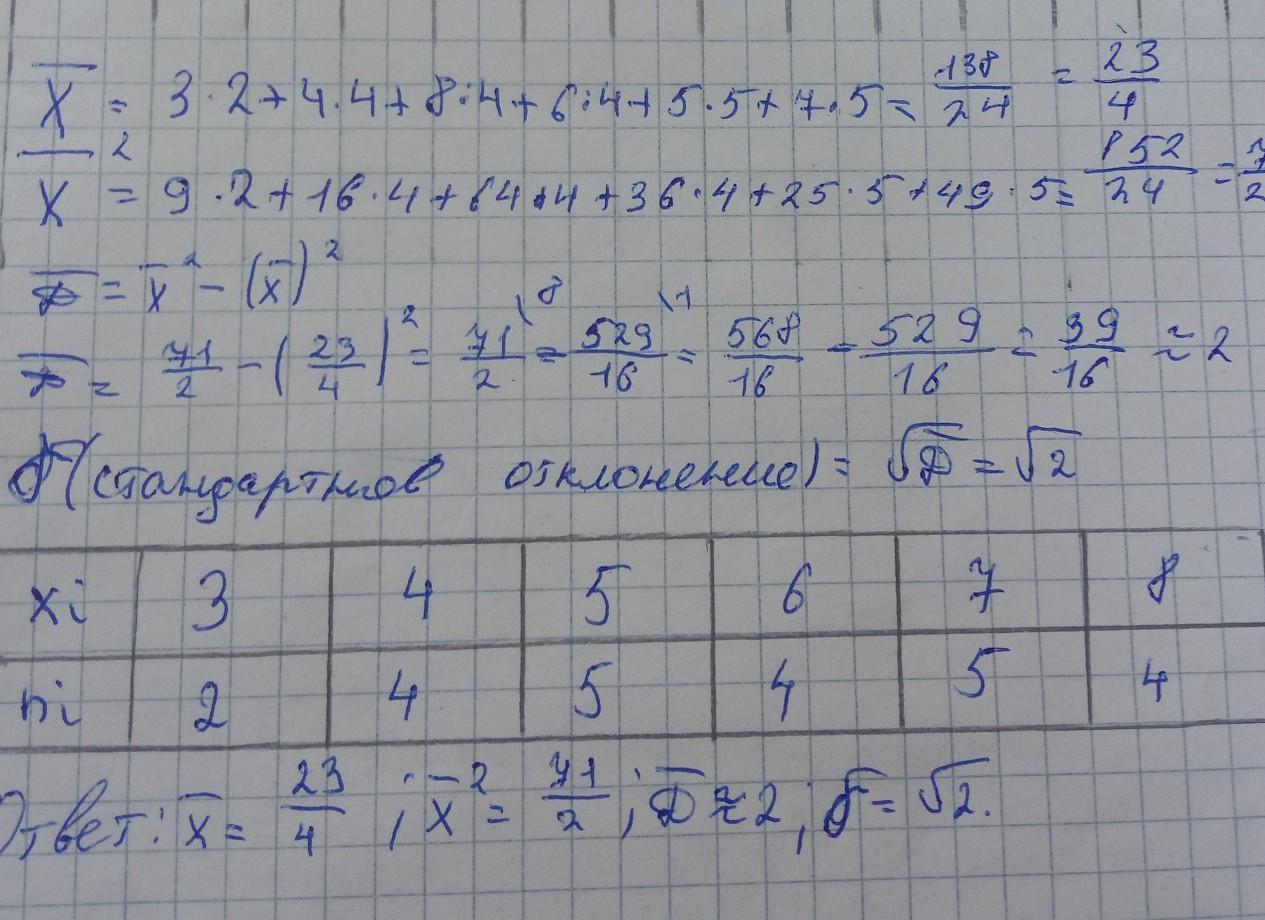 X̅ = 3·2+4·4+8·4+6·4+5·5+7·5= 138/24 = 23/4
X̅² = 9·2+16·4+64·4+36·4+25·5+49·5= 852/24 = 7/2
D̅ = x̅² - (x̅)²
D̅ = 71/2 - (23/4)² = 71/2 \8 - 529/16 \1 = 568/16 - 529/16 = 39/16 ≈ 2
σ (стандартное отклонение) = √D̅ = √2
xi 3 4 5 6 7 8
ni 2 4 5 4 5 4
Ответ: x̅ = 23/4 ; x̅² = 71/2 ; D̅ ≈ 2 ; σ = √2.